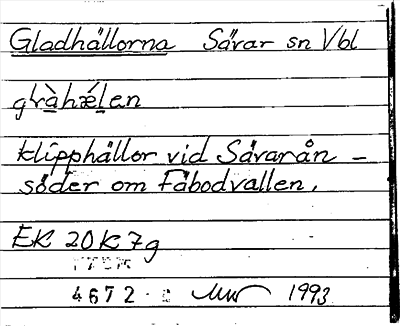 Gladhällorna Sävar sn Vbl
klipphällor vid Sävarån –
söder om Fäbodvallen.
EK 20K 7g
4672
1993